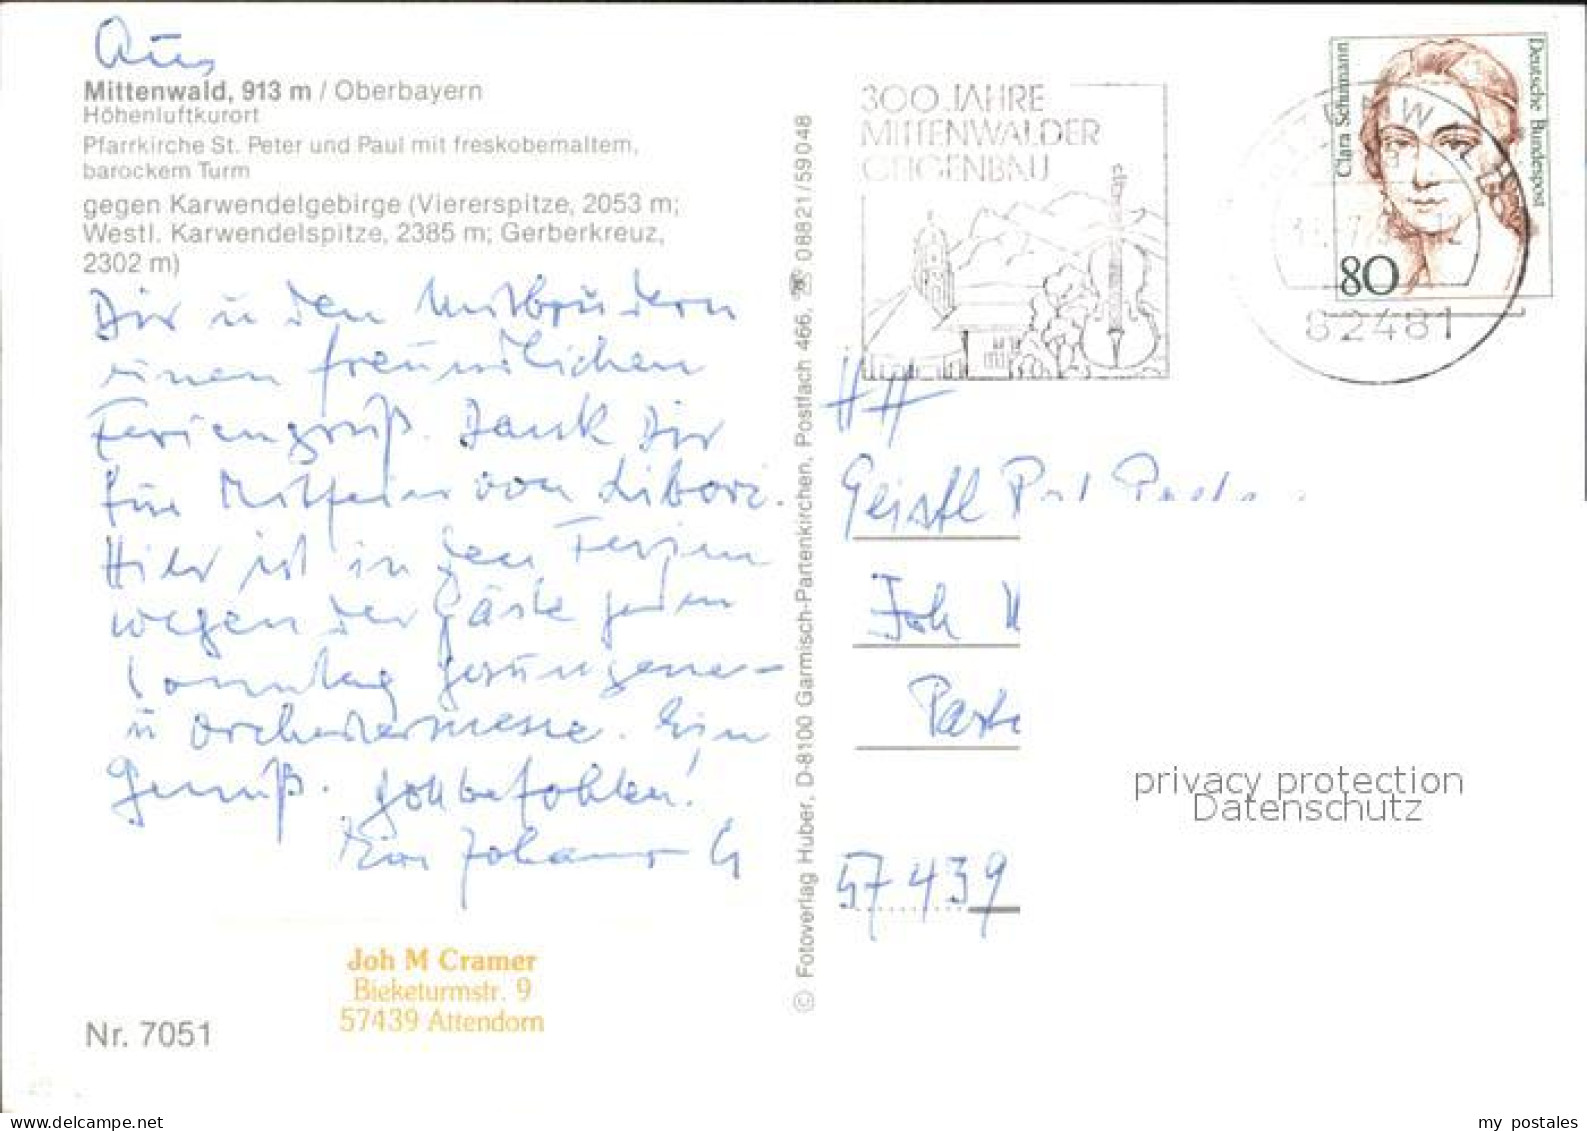 Aus
Mittenwald, 913 m / Oberbayern
Höhenluftkurort
Pfarrkirche St. Peter und Paul mit freskobemaltem,
barockem Turm
gegen Karwendelgebirge (Viererspitze, 2053 m;
Westl. Karwendelspitze, 2385 m; Gerberkreuz,
2302 m)
Dir u den Mitbrüdern
einen freundlichen
Feriengruß. Dank Dir
für Mitfeier von Libori.
Hier ist in den Ferien
wegen der Gäste jeden
Sonntag gesungene-
u Orchestermesse. Ein
Genuß. Gottbefohlen!
Dein Johannes
Joh M Cramer
Bieketurmstr. 9
57439 Attendorn
Nr. 7051
© Fotoverlag Huber, D-8100 Garmisch-Partenkirchen, Postfach 466, ☎ 08821/59048
300 JAHRE
MITTENWALDER
GEIGENBAU
Clara Schumann
Deutsche Bundespost
80
82481
Geistl
Joh
57439
privacy protection
Datenschutz
my postales